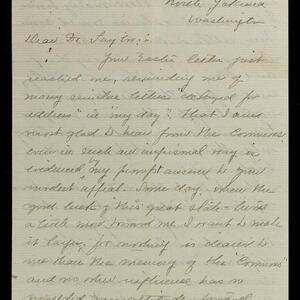 North Yakima
Washington
Dear Dr. Saylor:
Your Easter letter just
reached me, reminding me of
many similar letters "delayed for
address" in "my day". That I was
most glad to hear from the Commons
even in such an informal way is
evidenced by my prompt answer to your
modest appeal. Some day, when the
good luck of this great state turns
a little more toward me I want to make
it larger, for nothing is dearer to
me than the memory of the "Commons"
and no other influence has so
my attitude toward